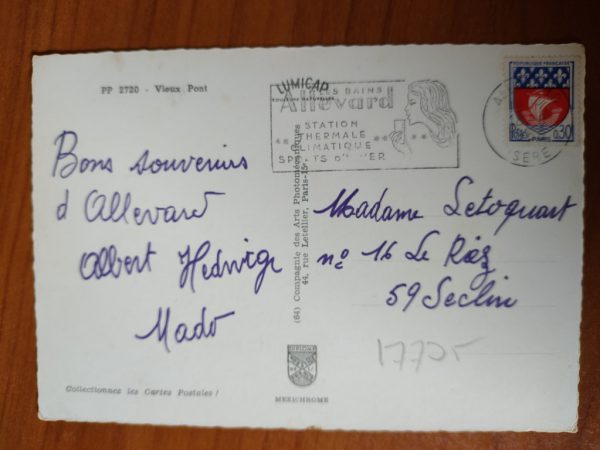 PP 2720 - Vieux Pont
LUMICAP
LES BAINS
Allevard
STATION
THERMALE
CLIMATIQUE
SPORTS D'HIVER
REPUBLIQUE FRANÇAISE
0,30
PARIS
ISERE
Bons souvenirs
d Allevard
Albert Hedwige
Mado
(64) Compagnie des Arts Photomécaniques
44, rue Letellier, Paris-15e
Madame Letoquart
nº 16 Le Riez
59 Seclin
17705
Collectionnez les Cartes Postales !
MEXICHROME